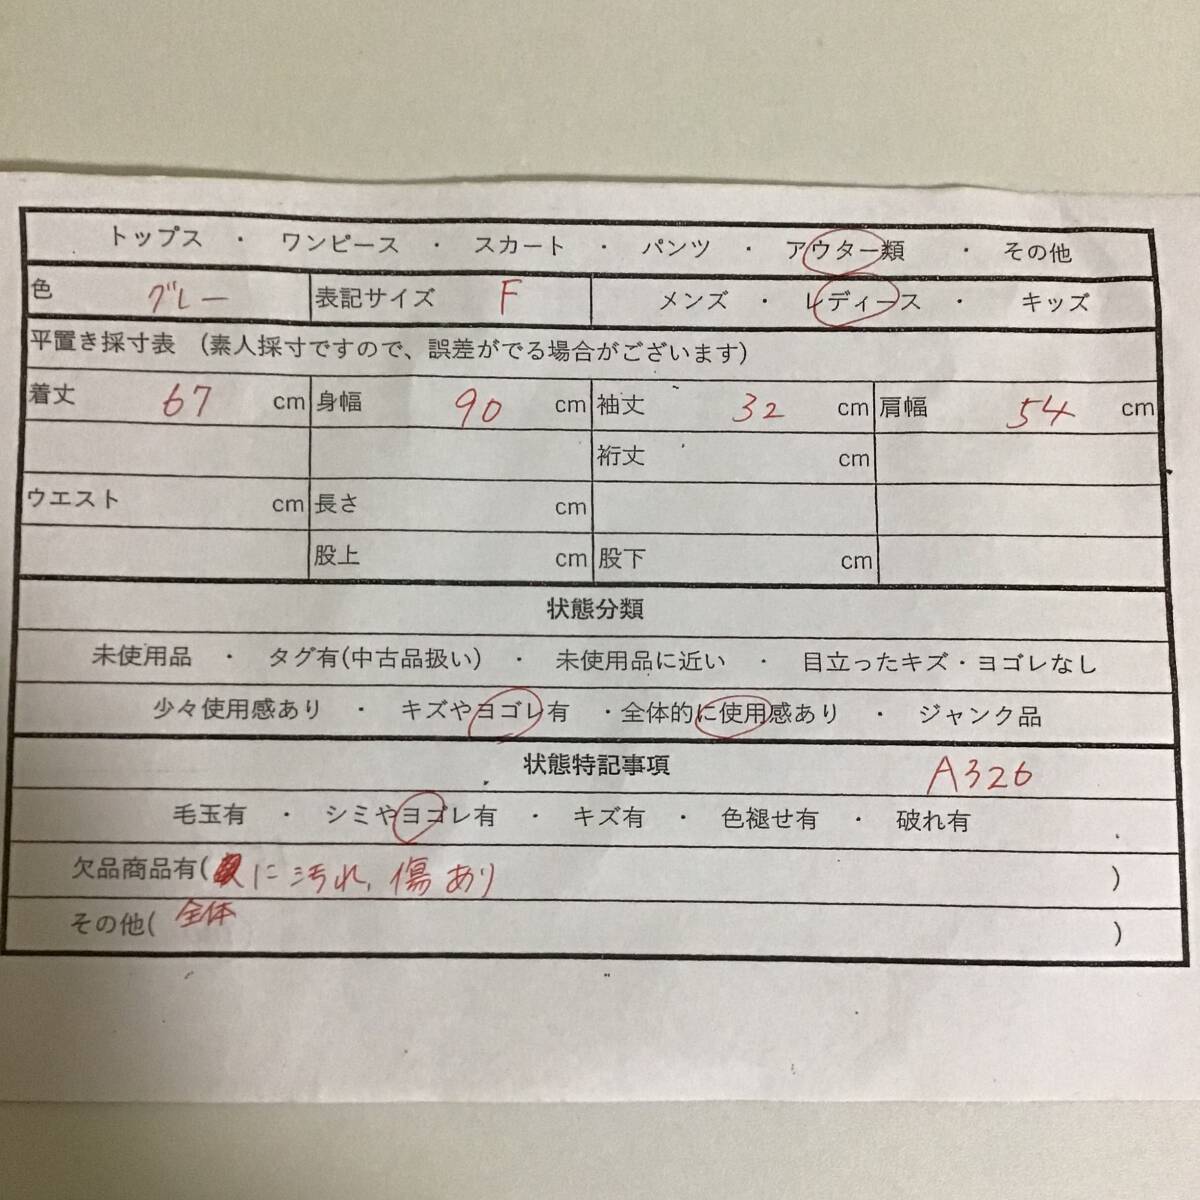 トップス ・ ワンピース ・ スカート ・ パンツ ・ アウター類 ・ その他
色 グレー 表記サイズ F メンズ ・ レディース ・ キッズ
平置き採寸表 (素人採寸ですので、誤差がでる場合がございます)
着丈 67 cm 身幅 90 cm 袖丈 32 cm 肩幅 54 cm
裄丈 cm
ウエスト cm 長さ cm
股上 cm 股下 cm
状態分類
未使用品 ・ タグ有(中古品扱い) ・ 未使用品に近い ・ 目立ったキズ・ヨゴレなし
少々使用感あり ・ キズやヨゴレ有 ・全体的に使用感あり ・ ジャンク品
状態特記事項 A326
毛玉有 ・ シミやヨゴレ有 ・ キズ有 ・ 色褪せ有 ・ 破れ有
欠品商品有( に汚れ、傷あり )
その他( 全体 )